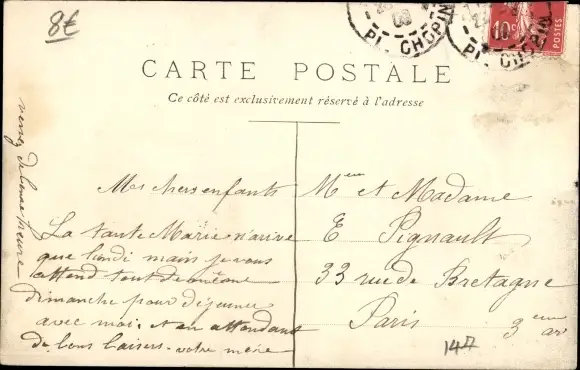 8€
08
PL. CHOPIN
PL. CHOPIN
10c
POSTES
CARTE POSTALE
Ce côté est exclusivement réservé à l'adresse
Mes chers enfants
La tante Marie n'arrive
que lundi mais je vous
attend tout de même
dimanche pour déjeuner
avec moi. et en attendant
de bons baisers. votre mère
venez de bonne heure
Meur et Madame
E Pignault
33 rue de Bretagne
Paris 3eme ar
147